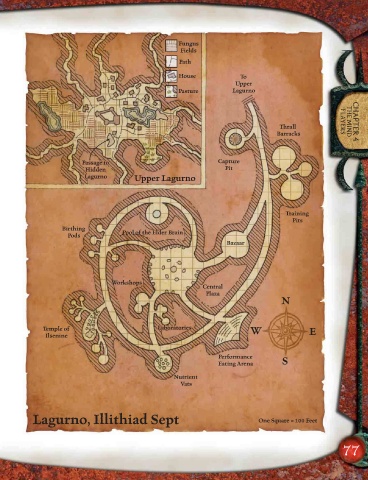 Fungus
Fields
Path
House
Pasture
Passage to
Hidden
Lagurno
Upper Lagurno
To
Upper
Lagurno
Thrall
Barracks
Capture
Pit
Training
Pits
Birthing
Pods
Pool of the Elder Brain
Bazaar
Workshops
Central
Plaza
Laboratories
Temple of
Ilsensine
Nutrient
Vats
Performance
Eating Arena
N
W
E
S
Lagurno, Illithiad Sept
One Square = 100 Feet
CHAPTER 4
THE MIND
FLAYERS
77